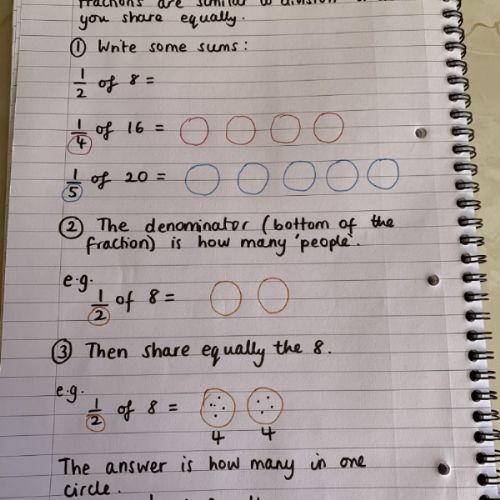 fractions are similar to division
you share equally.
① Write some sums:
1/2 of 8 =
1/4 of 16 =
1/5 of 20 =
② The denominator (bottom of the
fraction) is how many 'people'.
e.g.
1/2 of 8 =
③ Then share equally the 8.
e.g.
1/2 of 8 =
4 4
The answer is how many in one
circle.